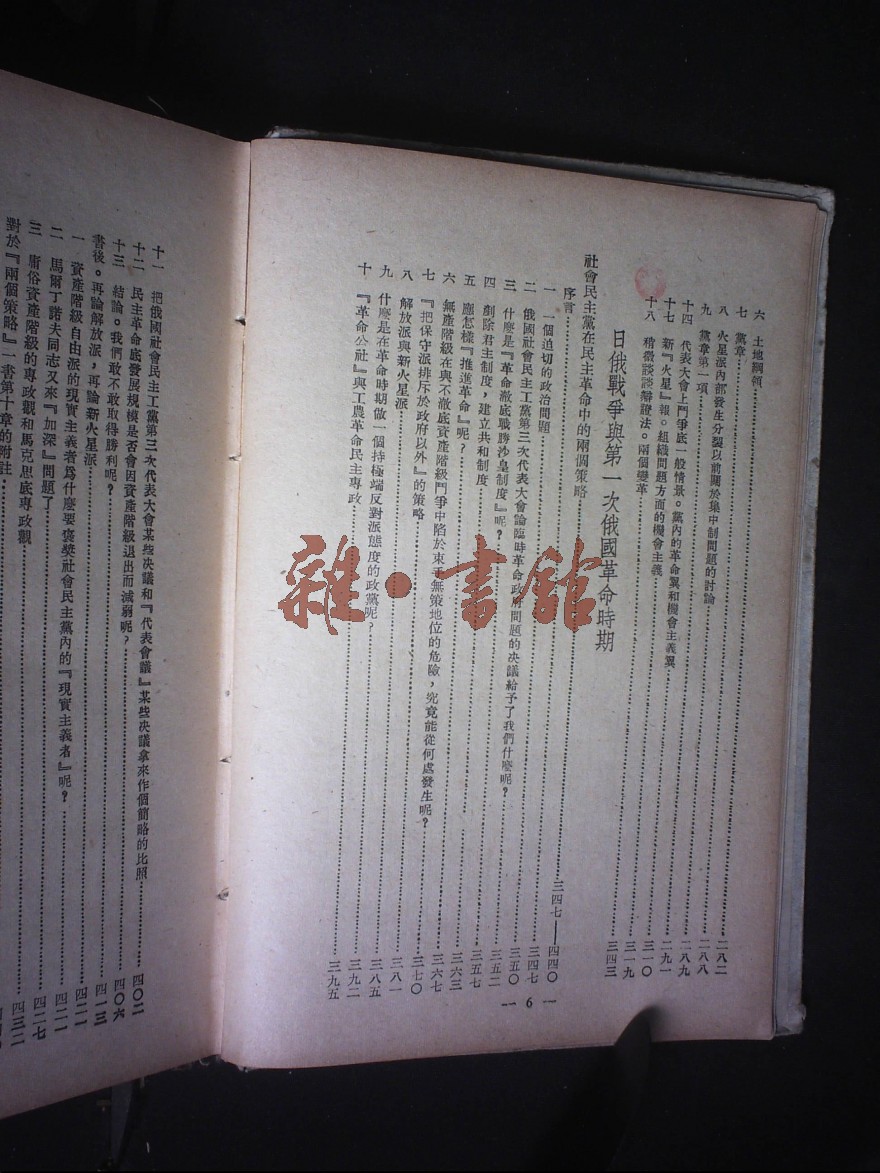 六 土地綱領……二八二
七 黨章……二八八
八 火星派內部發生分裂以前關於集中制問題的討論……二八九
九 黨章第一項……二九一
十四 代表大會上鬥爭底一般情景。黨內的革命翼和機會主義翼……三一〇
十七 新『火星』報。組織問題方面的機會主義……三一九
十八 稍微談談辯證法。兩個變革……三四三
日俄戰爭與第一次俄國革命時期
社會民主黨在民主革命中的兩個策略……三四七—四四〇
序言……三四七
一 一個迫切的政治問題……三五〇
二 俄國社會民主工黨第三次代表大會論臨時革命政府問題的决議給予了我們什麼呢?……三五二
三 什麼是『革命澈底戰勝沙皇制度』呢?……三五七
四 剷除君主制度,建立共和制度……三六三
五 應怎樣『推進革命』呢?……三六七
六 無產階級在與不澈底資產階級鬥爭中陷於束手無策地位的危險,究竟能從何處發生呢?……三七〇
七 『把保守派排斥於政府以外』的策略……三八一
八 解放派與新火星派……三八五
九 什麼是在革命時期做一個持極端反對派態度的政黨呢?……三九二
十 『革命公社』與工農革命民主專政……三九五
— 6 —
雜·書館
十一 把俄國社會民主工黨第三次代表大會某些決議和『代表會議』某些決議拿來作個簡略的比照……四〇二
十二 民主革命底發展規模是否會因資產階級退出而減弱呢?……四〇六
十三 結論。我們敢不敢取得勝利呢?……四一三
書後。再論解放派,再論新火星派……四二一
一 資產階級自由派的現實主義者爲什麼要褒獎社會民主黨內的『現實主義者』呢?……四二一
二 馬爾丁諾夫同志又來『加深』問題了……四二七
三 庸俗資產階級的專政觀和馬克思底專政觀……四三二
對於『兩個策略』一書第十章的附註……